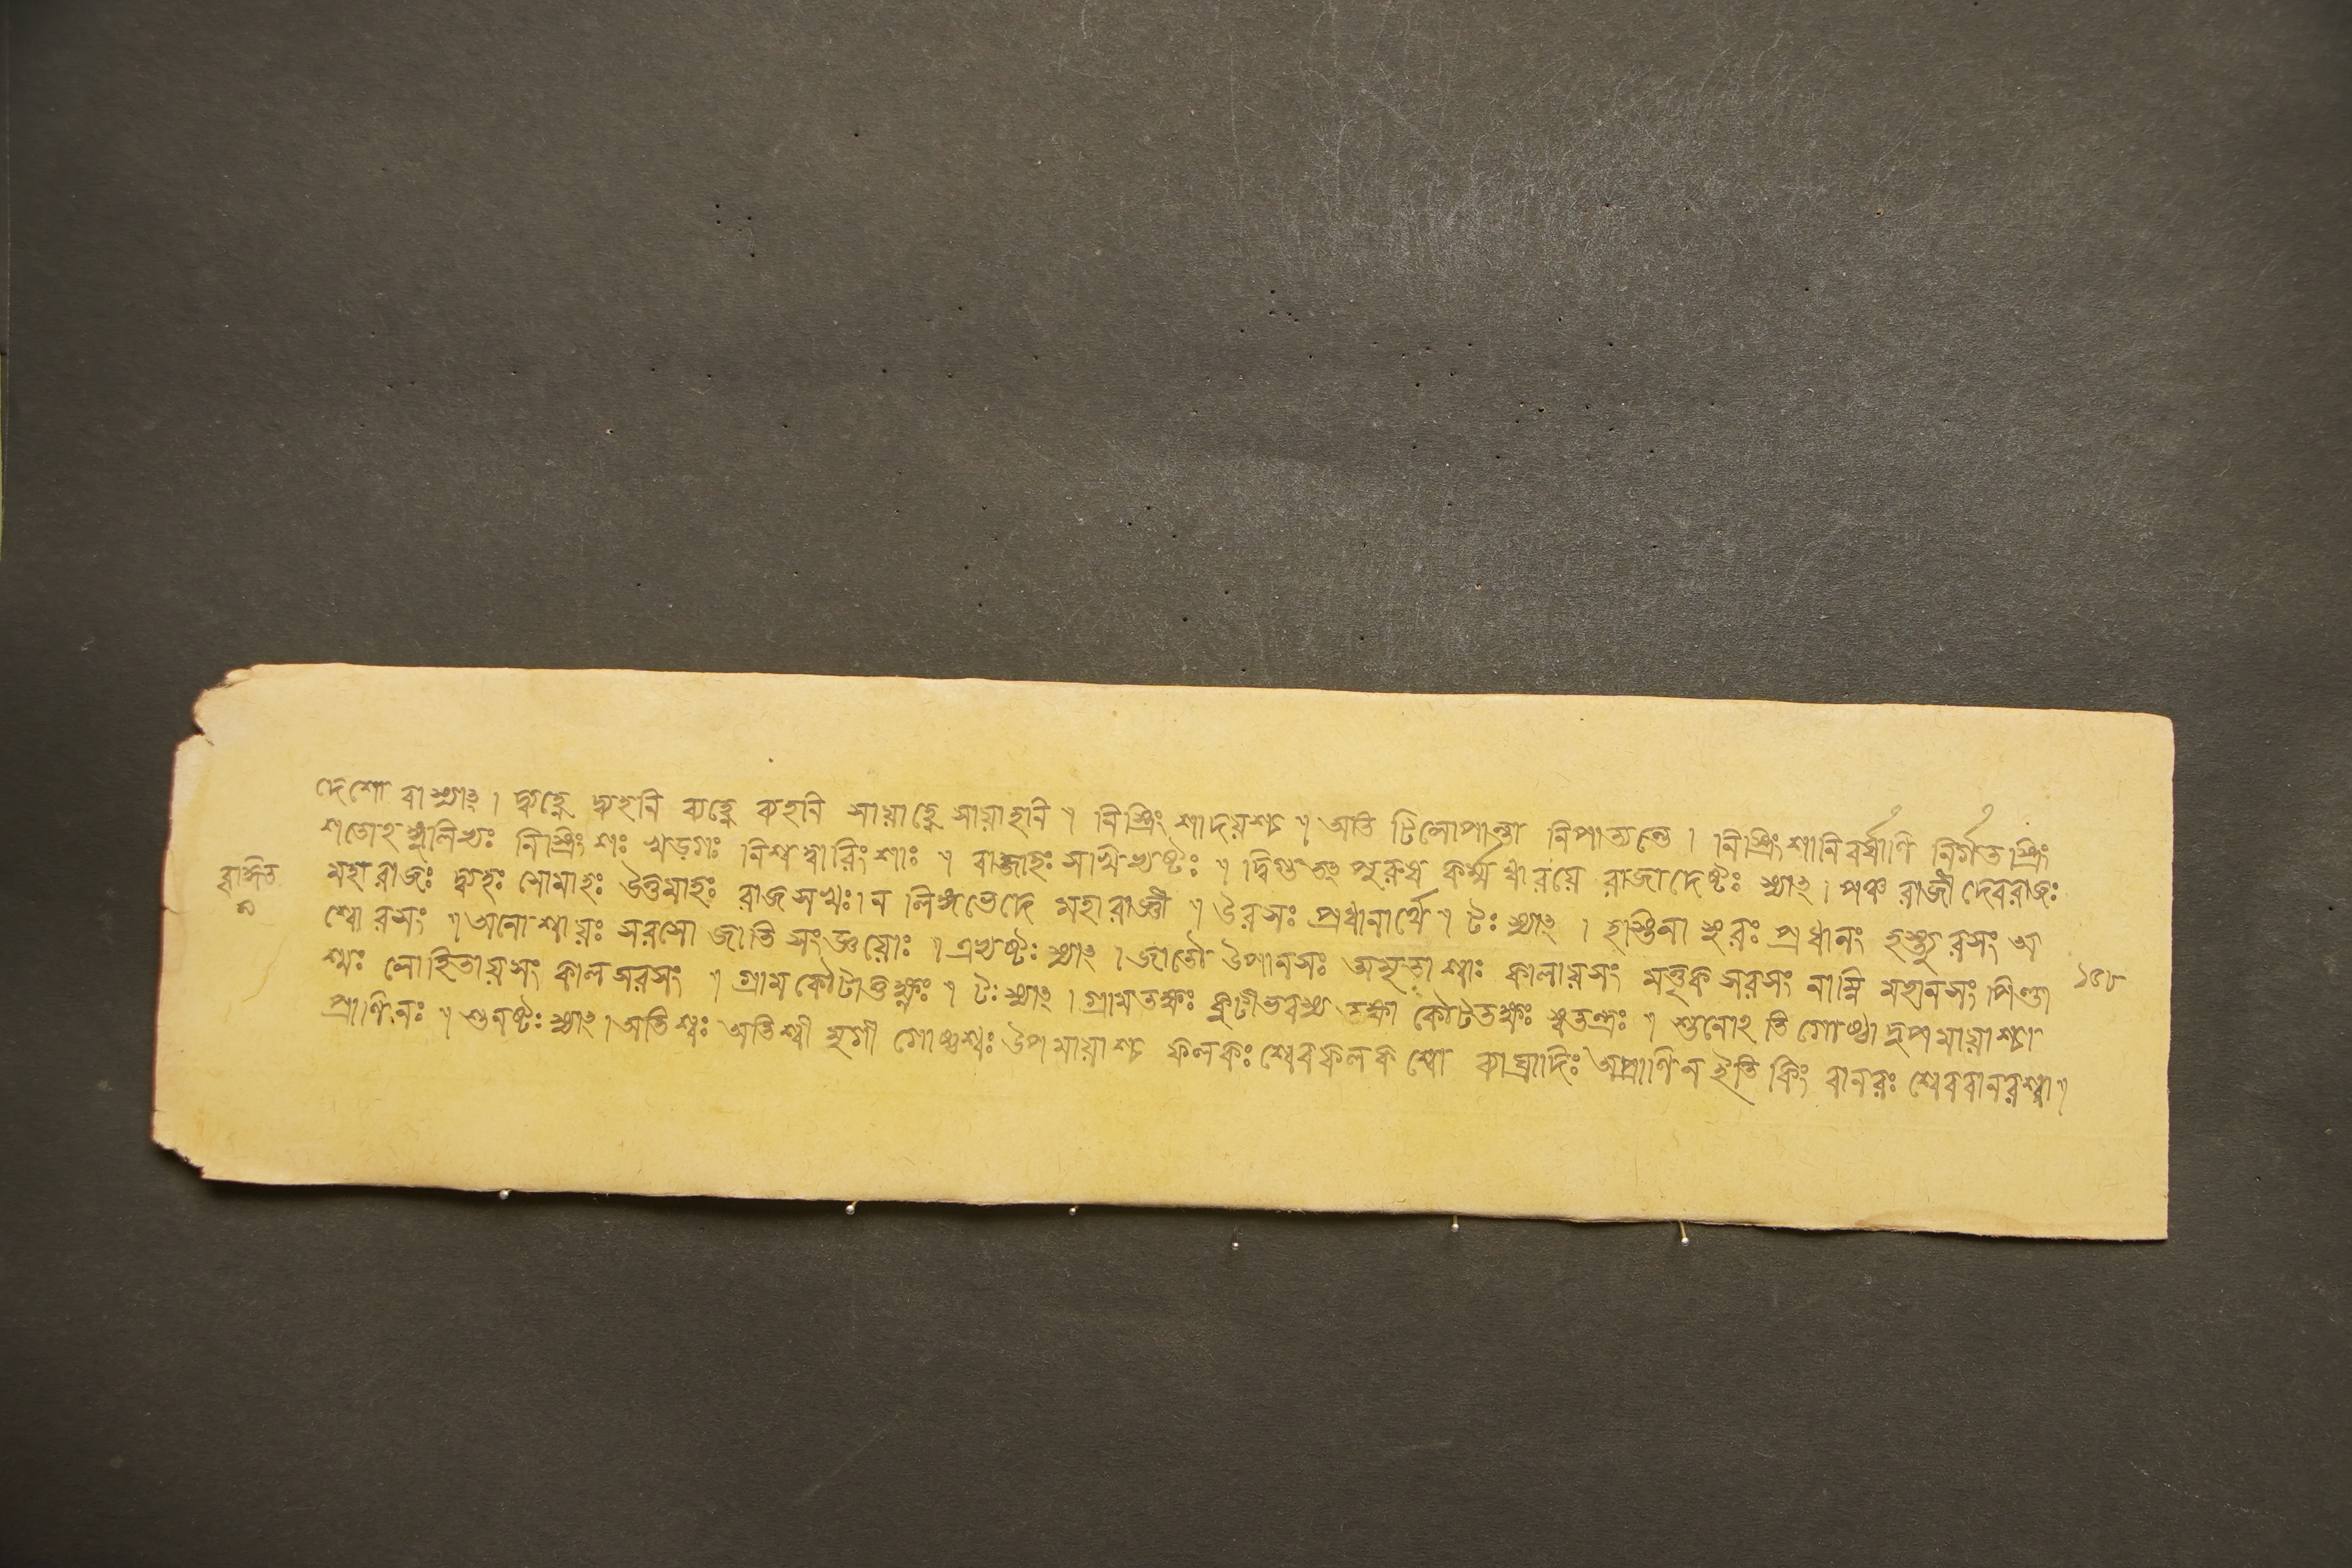 দেশো বা স্যাৎ। দ্ব্যহ্নে দ্ব্যহনি ব্যহ্নে ব্যহনি সায়াহ্নে সায়াহনি ॥ নিস্ত্রিংশাদয়শ্চ ॥ অতি টিলোপান্তা নিপাত্যন্তে। নিস্ত্রিংশানিবর্ষাণি নির্গতস্ত্রিং
শতোঽঙ্গুলিভ্যঃ নিস্ত্রিংশঃ খড়্গঃ নিশ্চত্বারিংশাঃ ॥ রাজাহঃ সখিভ্যষ্টঃ ॥ দ্বিগু তৎপুরুষ কর্ম্মধারয়ে রাজাদেষ্টঃ স্যাৎ। পঞ্চ রাজী দেবরাজঃ
মহারাজঃ দ্ব্যহঃ সোমাহঃ উত্তমাহঃ রাজসখঃ। ন লিঙ্গভেদে মহারাজ্ঞী ॥ উরসঃ প্রধানার্থে ॥ টঃ স্যাৎ। হস্তিনামুরঃ প্রধানং হস্ত্যুরসং অ
শ্বোরসং ॥ অনোশ্মায়ঃ সরসো জাতি সংজ্ঞয়োঃ ॥ এভ্যষ্টঃ স্যাৎ। জাতৌ উপানসঃ অমৃতাশ্মঃ কালায়সং মণ্ডূক সরসং নাম্নি মহানসং পিণ্ডা
শ্মঃ লোহিতায়সং জাল সরসং ॥ গ্রাম কৌটাত্তক্ষ্ণঃ ॥ টঃ স্যাৎ। গ্রামতক্ষঃ কুটীভবশ্চ তক্ষা কৌটতক্ষঃ স্বতন্ত্রঃ ॥ শুনোঽতিগোষ্ঠাদুপমায়াশ্চা
প্রাণিনঃ ॥ শুনষ্টঃ স্যাৎ। অতিশ্বঃ অতিশ্বী মৃগী গোষ্ঠশ্বঃ উপমায়াশ্চ ফলকঃ শ্বেবফলকশ্বো ব্যাঘ্রাদিঃ অপ্রাণিন ইতি কিং বানরঃ শ্বেববানরশ্বা॥
১৫৮